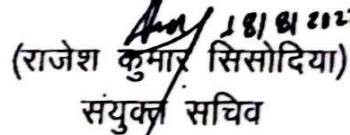 18/8/202
(राजेश कुमार सिसोदिया)
संयुक्त सचिव